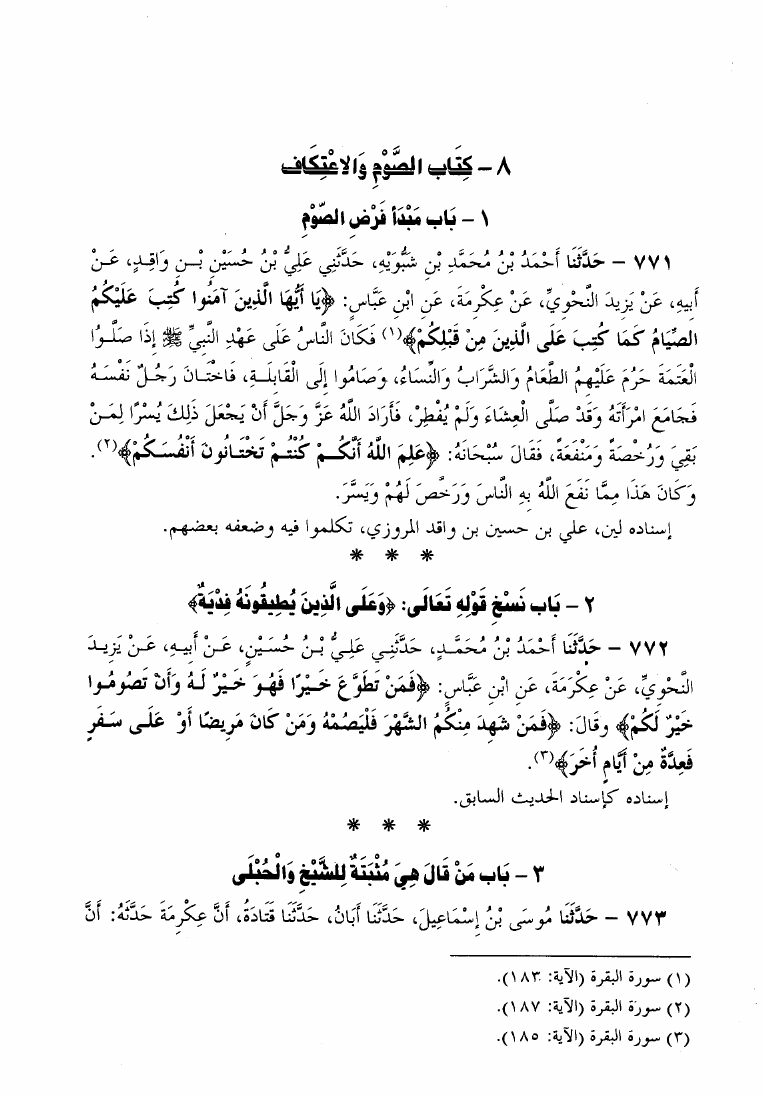 ٨ – كِتَاب الصَّوْمِ وَالاعْتِكَاف
١ – بَاب مَبْدَأ فَرْضِ الصّوْمِ
٧٧١ – حَدَّثَنَا أَحْمَدُ بْنُ مُحَمَّدِ بْنِ شَبُّوَيْهِ، حَدَّثَنِي عَلِيُّ بْنُ حُسَيْنِ بْـنِ وَاقِـدٍ، عَـنْ
أَبِيهِ، عَنْ يَزِيدَ النَّحْوِيِّ، عَنْ عِكْرِمَةَ، عَنِ ابْنِ عَبَّاسٍ: ﴿يَا أَيُّهَا الَّذِينَ آمَنُوا كُتِبَ عَلَيْكُمُ
الصِّيَامُ كَمَا كُتِبَ عَلَى الَّذِينَ مِنْ قَبْلِكُمْ﴾(١) فَكَانَ النَّاسُ عَلَى عَهْدِ النَّبِيِّ ﷺ إِذَا صَلَّـوُا
الْعَتَمَةَ حَرُمَ عَلَيْهِمُ الطَّعَامُ وَالشَّرَابُ وَالنِّسَاءُ، وَصَامُوا إِلَى الْقَابِلَـةِ، فَاخْتَـانَ رَجُـلٌ نَفْسَـهُ
فَجَامَعَ امْرَأَتَهُ وَقَدْ صَلَّى الْعِشَاءَ وَلَمْ يُفْطِرْ، فَأَرَادَ اللَّهُ عَزَّ وَجَلَّ أَنْ يَجْعَلَ ذَلِكَ يُسْرًا لِمَـنْ
بَقِيَ وَرُخْصَةً وَمَنْفَعَةً، فَقَالَ سُبْحَانَهُ: ﴿عَلِمَ اللَّهُ أَنَّكُـمْ كُنْتُـمْ تَخْتَـانُونَ أَنْفُسَـكُمْ﴾(٢).
وَكَانَ هَذَا مِمَّا نَفَعَ اللَّهُ بِهِ النَّاسَ وَرَخَّصَ لَهُمْ وَيَسَّرَ.
إسناده لين، علي بن حسين بن واقد المروزي، تكلموا فيه وضعفه بعضهم.
* * *
٢ – بَاب نَسْخِ قَوْلِهِ تَعَالَى: ﴿وَعَلَى الَّذِينَ يُطِيقُونَهُ فِدْيَةٌ﴾
٧٧٢ – حَدَّثَنَا أَحْمَدُ بْنُ مُحَمَّـدٍ، حَدَّثَنِـي عَلِـيُّ بْـنُ حُسَـيْنٍ، عَـنْ أَبِيـهِ، عَـنْ يَزِيـدَ
النَّحْوِيِّ، عَنْ عِكْرِمَةَ، عَنِ ابْنِ عَبَّاسٍ: ﴿فَمَنْ تَطَوَّعَ خَـيْرًا فَهُـوَ خَـيْرٌ لَـهُ وَأَنْ تَصُومُـوا
خَيْرٌ لَكُمْ﴾ وقَالَ: ﴿فَمَنْ شَهِدَ مِنْكُمُ الشَّهْرَ فَلْيَصُمْهُ وَمَنْ كَانَ مَرِيضًا أَوْ عَلَـى سَـفَرٍ
فَعِدَّةٌ مِنْ أَيَّامٍ أُخَرَ﴾(٣).
إسناده كإسناد الحديث السابق.
* * *
٣ – بَاب مَنْ قَالَ هِيَ مُثْبَتَةٌ لِلشَّيْخِ وَالْحُبْلَى
٧٧٣ – حَدَّثَنَا مُوسَى بْنُ إِسْمَاعِيلَ، حَدَّثَنَا أَبَانُ، حَدَّثَنَا قَتَادَةُ، أَنَّ عِكْرِمَةَ حَدَّثَهُ: أَنَّ
(١) سورة البقرة (الآية: ١٨٣).
(٢) سورة البقرة (الآية: ١٨٧).
(٣) سورة البقرة (الآية: ١٨٥).